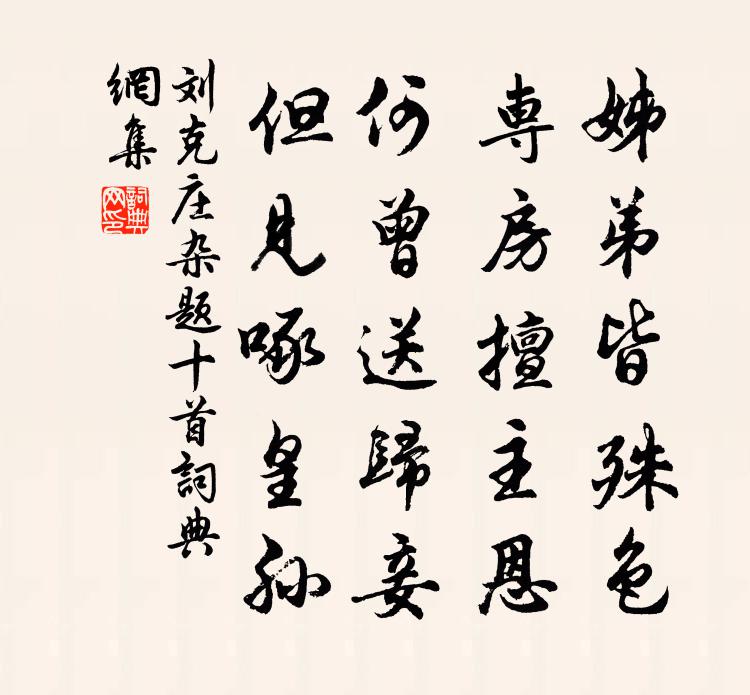 姊弟皆殊色
専房擅主恩
何曾送歸妾
但見啄皇孙
刘克庄杂题十首詞典
網集
詞典
网印